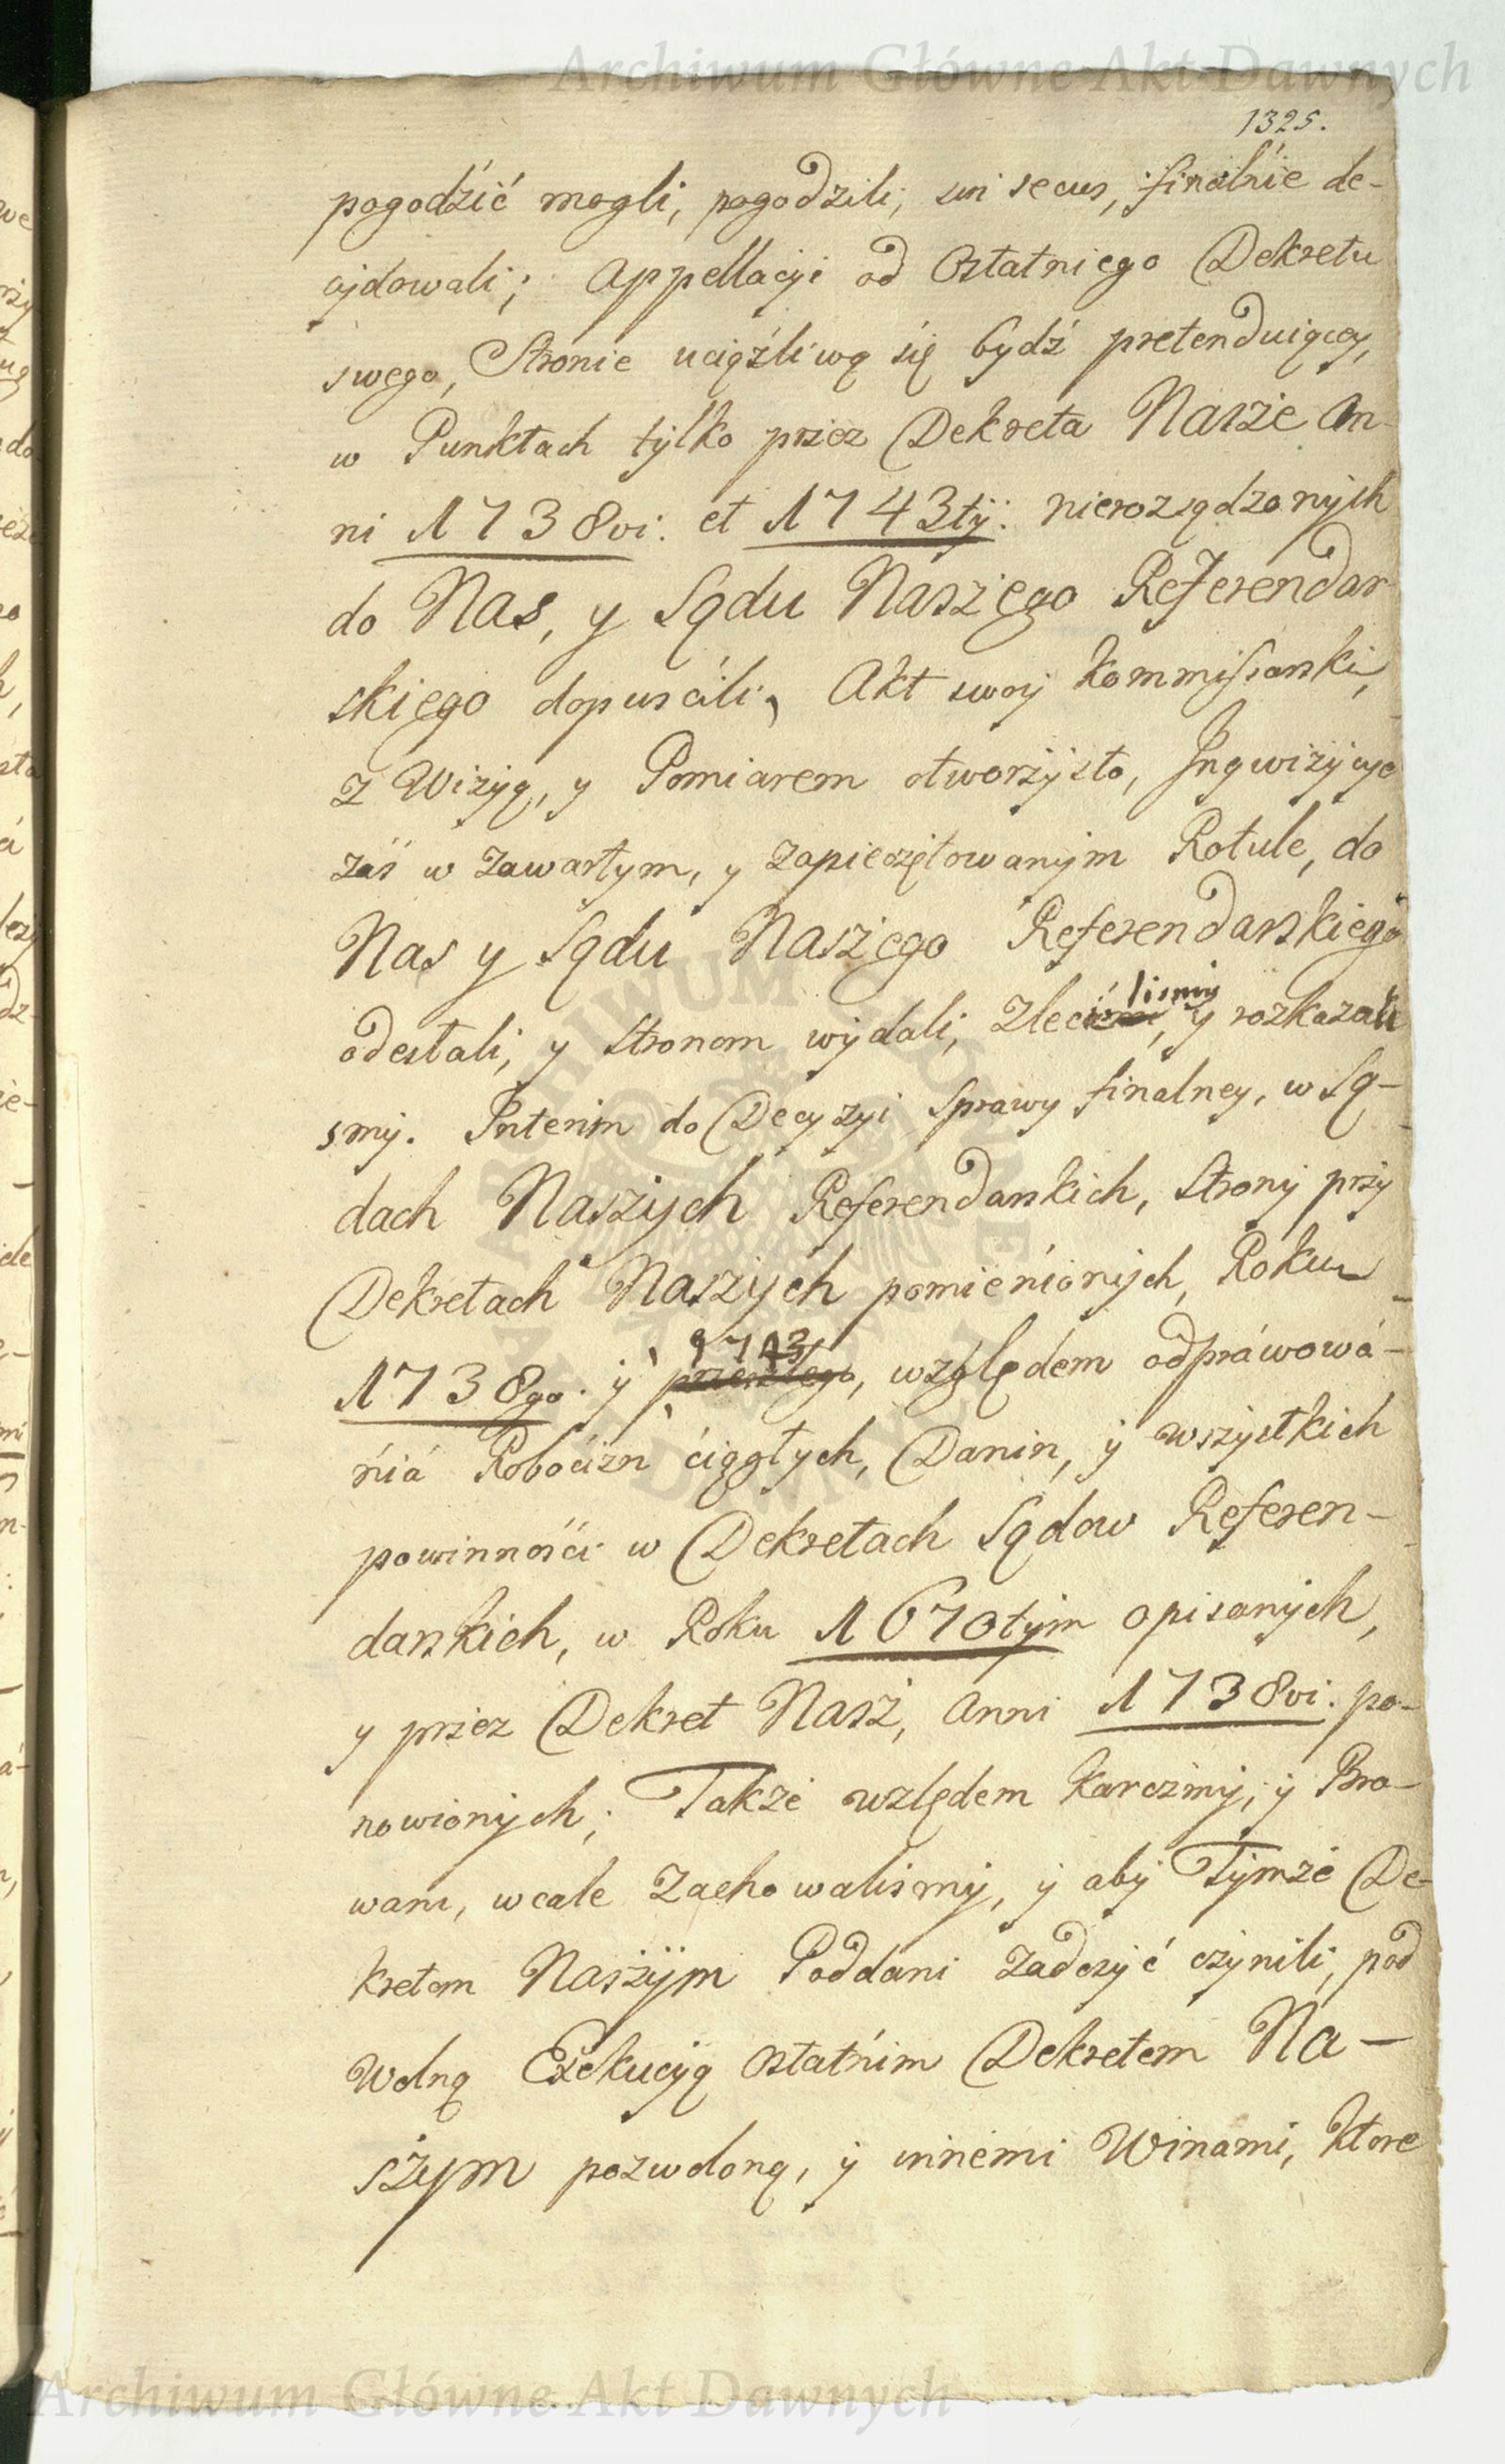 Archiwum Główne Akt Dawnych
1325.
pogodźić mogli, pogodzili, sin secus, finalnie de-
cydowali; Appellacyi od Ostatniego Dekretu
swego, Stronie uciążliwą się bydź pretenduiącey,
w Punktach tylko przez Dekreta Nasze An-
ni 1738vi. et 1743tÿ. nierozsądzonych
do Nas, y Sądu Naszego Referendar-
skiego dopuścili, Akt swoy Kommissarski,
z Wizyą, y Pomiarem otworzysto, Inqwizycye
zaś w zawartym, y zapieczętowanym Rotule, do
Nas y Sądu Naszego Referendarskiego
odesłali, y Stronom wydali, Zleciliśmy, y rozkazali
smy. Interim do Decyzyi Sprawy finalney, w Są-
dach Naszych Referendarskich, Strony przy
Dekretach Naszych pomienionych, Roku
1738go. y 1743 przeszłego, względem odpráwowá-
niá Roboćizn ćiągłych, Danin, y wszystkich
powinnośći w Dekretach Sądow Referen-
darskich, w Roku 1670tym opisanych,
y przez Dekret Nasz, Anni 1738vi. po-
nowionych; Także względem Karczmy, y Bro-
waru, wcale Zachowalismy, y aby Tymże De-
kretom Naszym Poddani Zadosyć czynili, pod
Wolną Exekucyą Ostatnim Dekretem Na-
szym pozwoloną, y innemi Winami, Ktore
Archiwum Główne Akt Dawnych